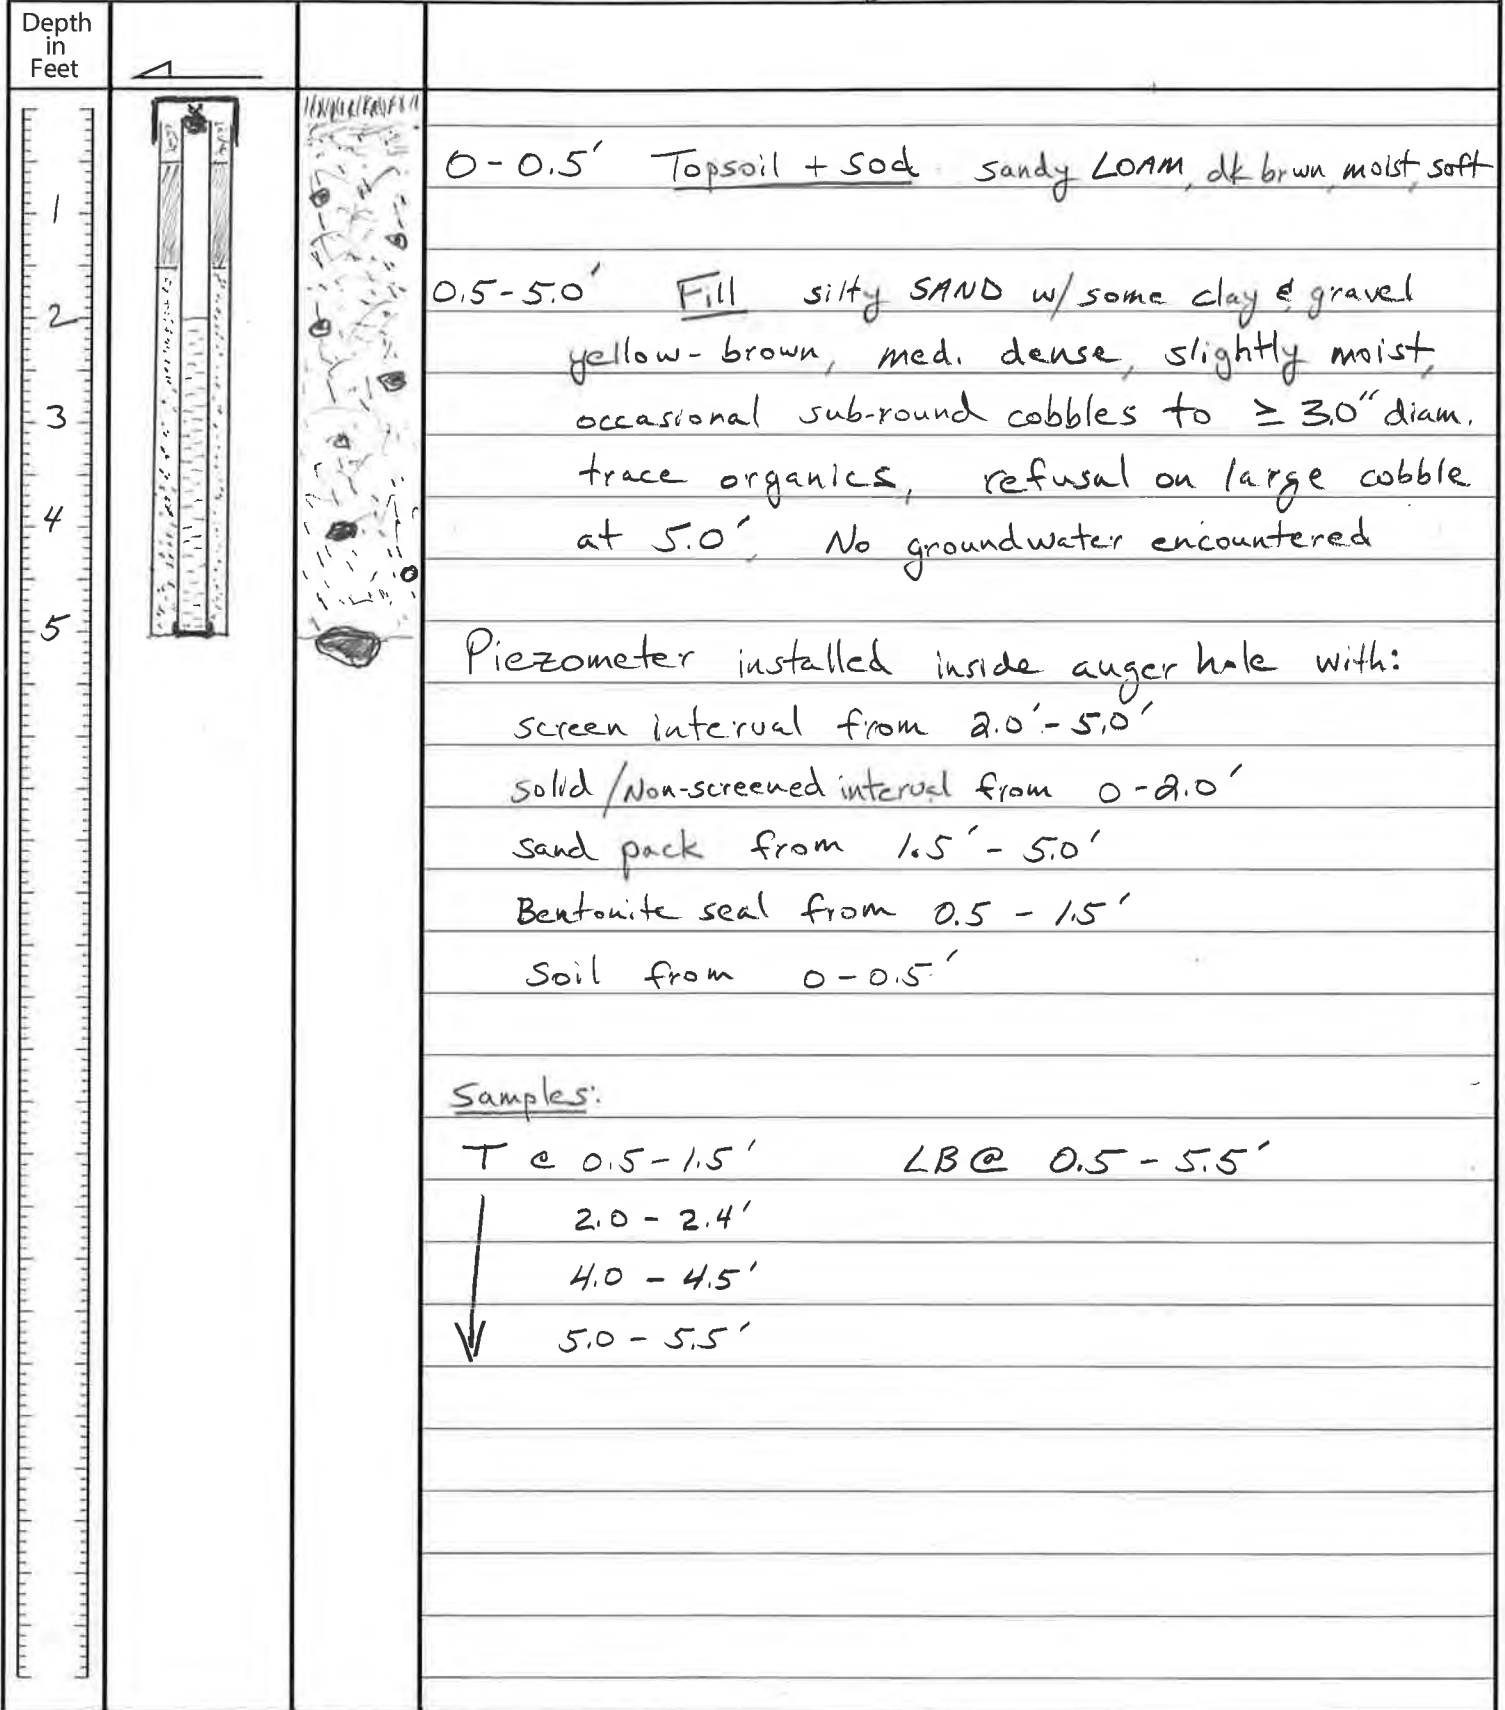 Depth
in
Feet
1
2
3
4
5
0 - 0.5' Topsoil + Sod sandy LOAM, dk brwn, moist, soft
0.5 - 5.0' Fill silty SAND w/ some clay & gravel
yellow-brown, med. dense, slightly moist,
occasional sub-round cobbles to ≥ 3.0" diam.
trace organics, refusal on large cobble
at 5.0', No groundwater encountered
Piezometer installed inside auger hole with:
screen interval from 2.0' - 5.0'
solid/Non-screened interval from 0 - 2.0'
sand pack from 1.5' - 5.0'
Bentonite seal from 0.5 - 1.5'
Soil from 0 - 0.5'
Samples:
T @ 0.5 - 1.5' LB @ 0.5 - 5.5'
2.0 - 2.4'
4.0 - 4.5'
5.0 - 5.5'